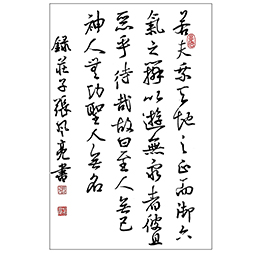 若夫乘天地之正而御六
氣之辯以遊無窮者彼且
惡乎待哉故曰至人無己
神人無功聖人無名
錄莊子張亮書